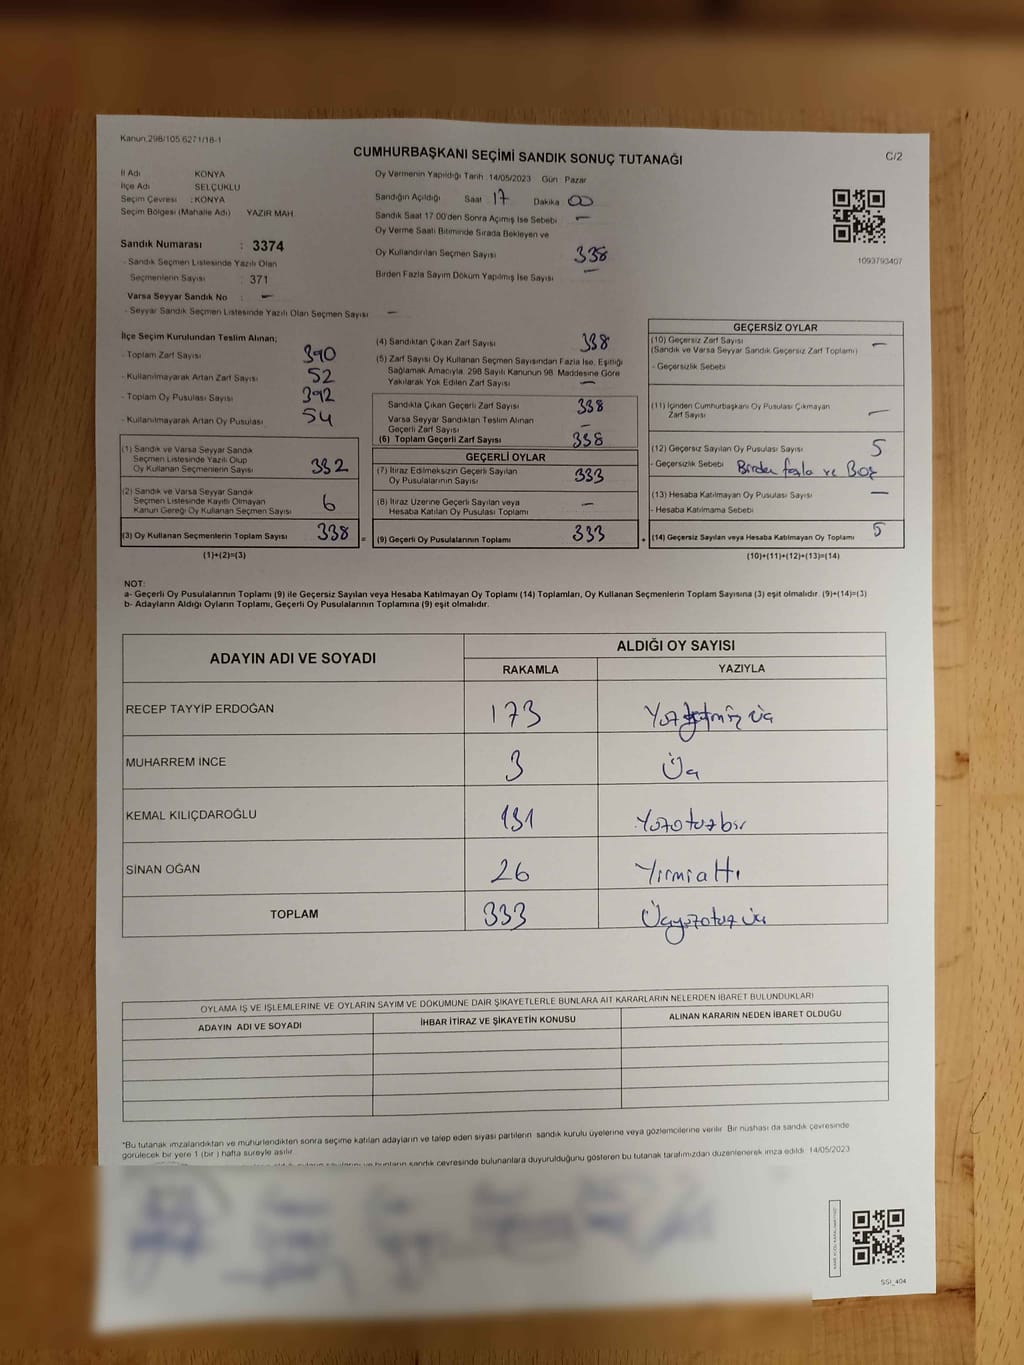 Kanun:298/105,6271/18-1
CUMHURBAŞKANI SEÇİMİ SANDIK SONUÇ TUTANAĞI
C/2
İl Adı KONYA
İlçe Adı SELÇUKLU
Seçim Çevresi : KONYA
Seçim Bölgesi (Mahalle Adı) YAZIR MAH.
Sandık Numarası : 3374
- Sandık Seçmen Listesinde Yazılı Olan
Seçmenlerin Sayısı : 371
Varsa Seyyar Sandık No : —
- Seyyar Sandık Seçmen Listesinde Yazılı Olan Seçmen Sayısı —
Oy Vermenin Yapıldığı Tarih 14/05/2023 Gün Pazar
Sandığın Açıldığı Saat 17 Dakika 00
Sandık Saat 17.00'den Sonra Açımış İse Sebebi —
Oy Verme Saati Bitiminde Sırada Bekleyen ve
Oy Kullandırılan Seçmen Sayısı 338
Birden Fazla Sayım Döküm Yapılmış İse Sayısı —
1093793407
İlçe Seçim Kurulundan Teslim Alınan;
- Toplam Zarf Sayısı 390
- Kullanılmayarak Artan Zarf Sayısı 52
- Toplam Oy Pusulası Sayısı 392
- Kullanılmayarak Artan Oy Pusulası 54
(1) Sandık ve Varsa Seyyar Sandık
Seçmen Listesinde Yazılı Olup
Oy Kullanan Seçmenlerin Sayısı 332
(2) Sandık ve Varsa Seyyar Sandık
Seçmen Listesinde Kayıtlı Olmayan
Kanun Gereği Oy Kullanan Seçmen Sayısı 6
(3) Oy Kullanan Seçmenlerin Toplam Sayısı 338
(1)+(2)=(3)
(4) Sandıktan Çıkan Zarf Sayısı 338
(5) Zarf Sayısı Oy Kullanan Seçmen Sayısından Fazla İse, Eşitliği
Sağlamak Amacıyla, 298 Sayılı Kanunun 98. Maddesine Göre
Yakılarak Yok Edilen Zarf Sayısı —
Sandıkta Çıkan Geçerli Zarf Sayısı 338
Varsa Seyyar Sandıktan Teslim Alınan
Geçerli Zarf Sayısı —
(6) Toplam Geçerli Zarf Sayısı 338
GEÇERLİ OYLAR
(7) İtiraz Edilmeksizin Geçerli Sayılan
Oy Pusulalarının Sayısı 333
(8) İtiraz Üzerine Geçerli Sayılan veya
Hesaba Katılan Oy Pusulası Toplamı —
= (9) Geçerli Oy Pusulalarının Toplamı 333
GEÇERSİZ OYLAR
(10) Geçersiz Zarf Sayısı —
(Sandık ve Varsa Seyyar Sandık Geçersiz Zarf Toplamı)
- Geçersizlik Sebebi
(11) İçinden Cumhurbaşkanı Oy Pusulası Çıkmayan
Zarf Sayısı —
(12) Geçersiz Sayılan Oy Pusulası Sayısı 5
- Geçersizlik Sebebi Birden fazla ve Boş
(13) Hesaba Katılmayan Oy Pusulası Sayısı —
- Hesaba Katılmama Sebebi
+ (14) Geçersiz Sayılan veya Hesaba Katılmayan Oy Toplamı 5
(10)+(11)+(12)+(13)=(14)
NOT:
a- Geçerli Oy Pusulasının Toplamı (9) ile Geçersiz Sayılan veya Hesaba Katılmayan Oy Toplamı (14) Toplamları, Oy Kullanan Seçmenlerin Toplam Sayısına (3) eşit olmalıdır. (9)+(14)=(3)
b- Adayların Aldığı Oyların Toplamı, Geçerli Oy Pusulalarının Toplamına (9) eşit olmalıdır.
ADAYIN ADI VE SOYADI ALDIĞI OY SAYISI
RAKAMLA YAZIYLA
RECEP TAYYİP ERDOĞAN 173 Yüzyetmiş üç
MUHARREM İNCE 3 Üç
KEMAL KILIÇDAROĞLU 131 Yüzotuzbir
SİNAN OĞAN 26 Yirmialtı
TOPLAM 333 Üçyüzotuz üç
OYLAMA İŞ VE İŞLEMLERİNE VE OYLARIN SAYIM VE DÖKÜMÜNE DAİR ŞİKAYETLERLE BUNLARA AİT KARARLARIN NELERDEN İBARET BULUNDUKLARI
ADAYIN ADI VE SOYADI İHBAR İTİRAZ VE ŞİKAYETİN KONUSU ALINAN KARARIN NEDEN İBARET OLDUĞU
*Bu tutanak imzalandıktan ve mühürlendikten sonra seçime katılan adayların ve talep eden siyasi partilerin sandık kurulu üyelerine veya gözlemcilerine verilir. Bir nushası da sandık çevresinde
görülecek bir yere 1 (bir ) hafta süreyle asılır.
sandık çevresinde bulunanlara duyurulduğunu gösteren bu tutanak tarafımızdan düzenlenerek imza edildi. 14/05/2023
SSI_404